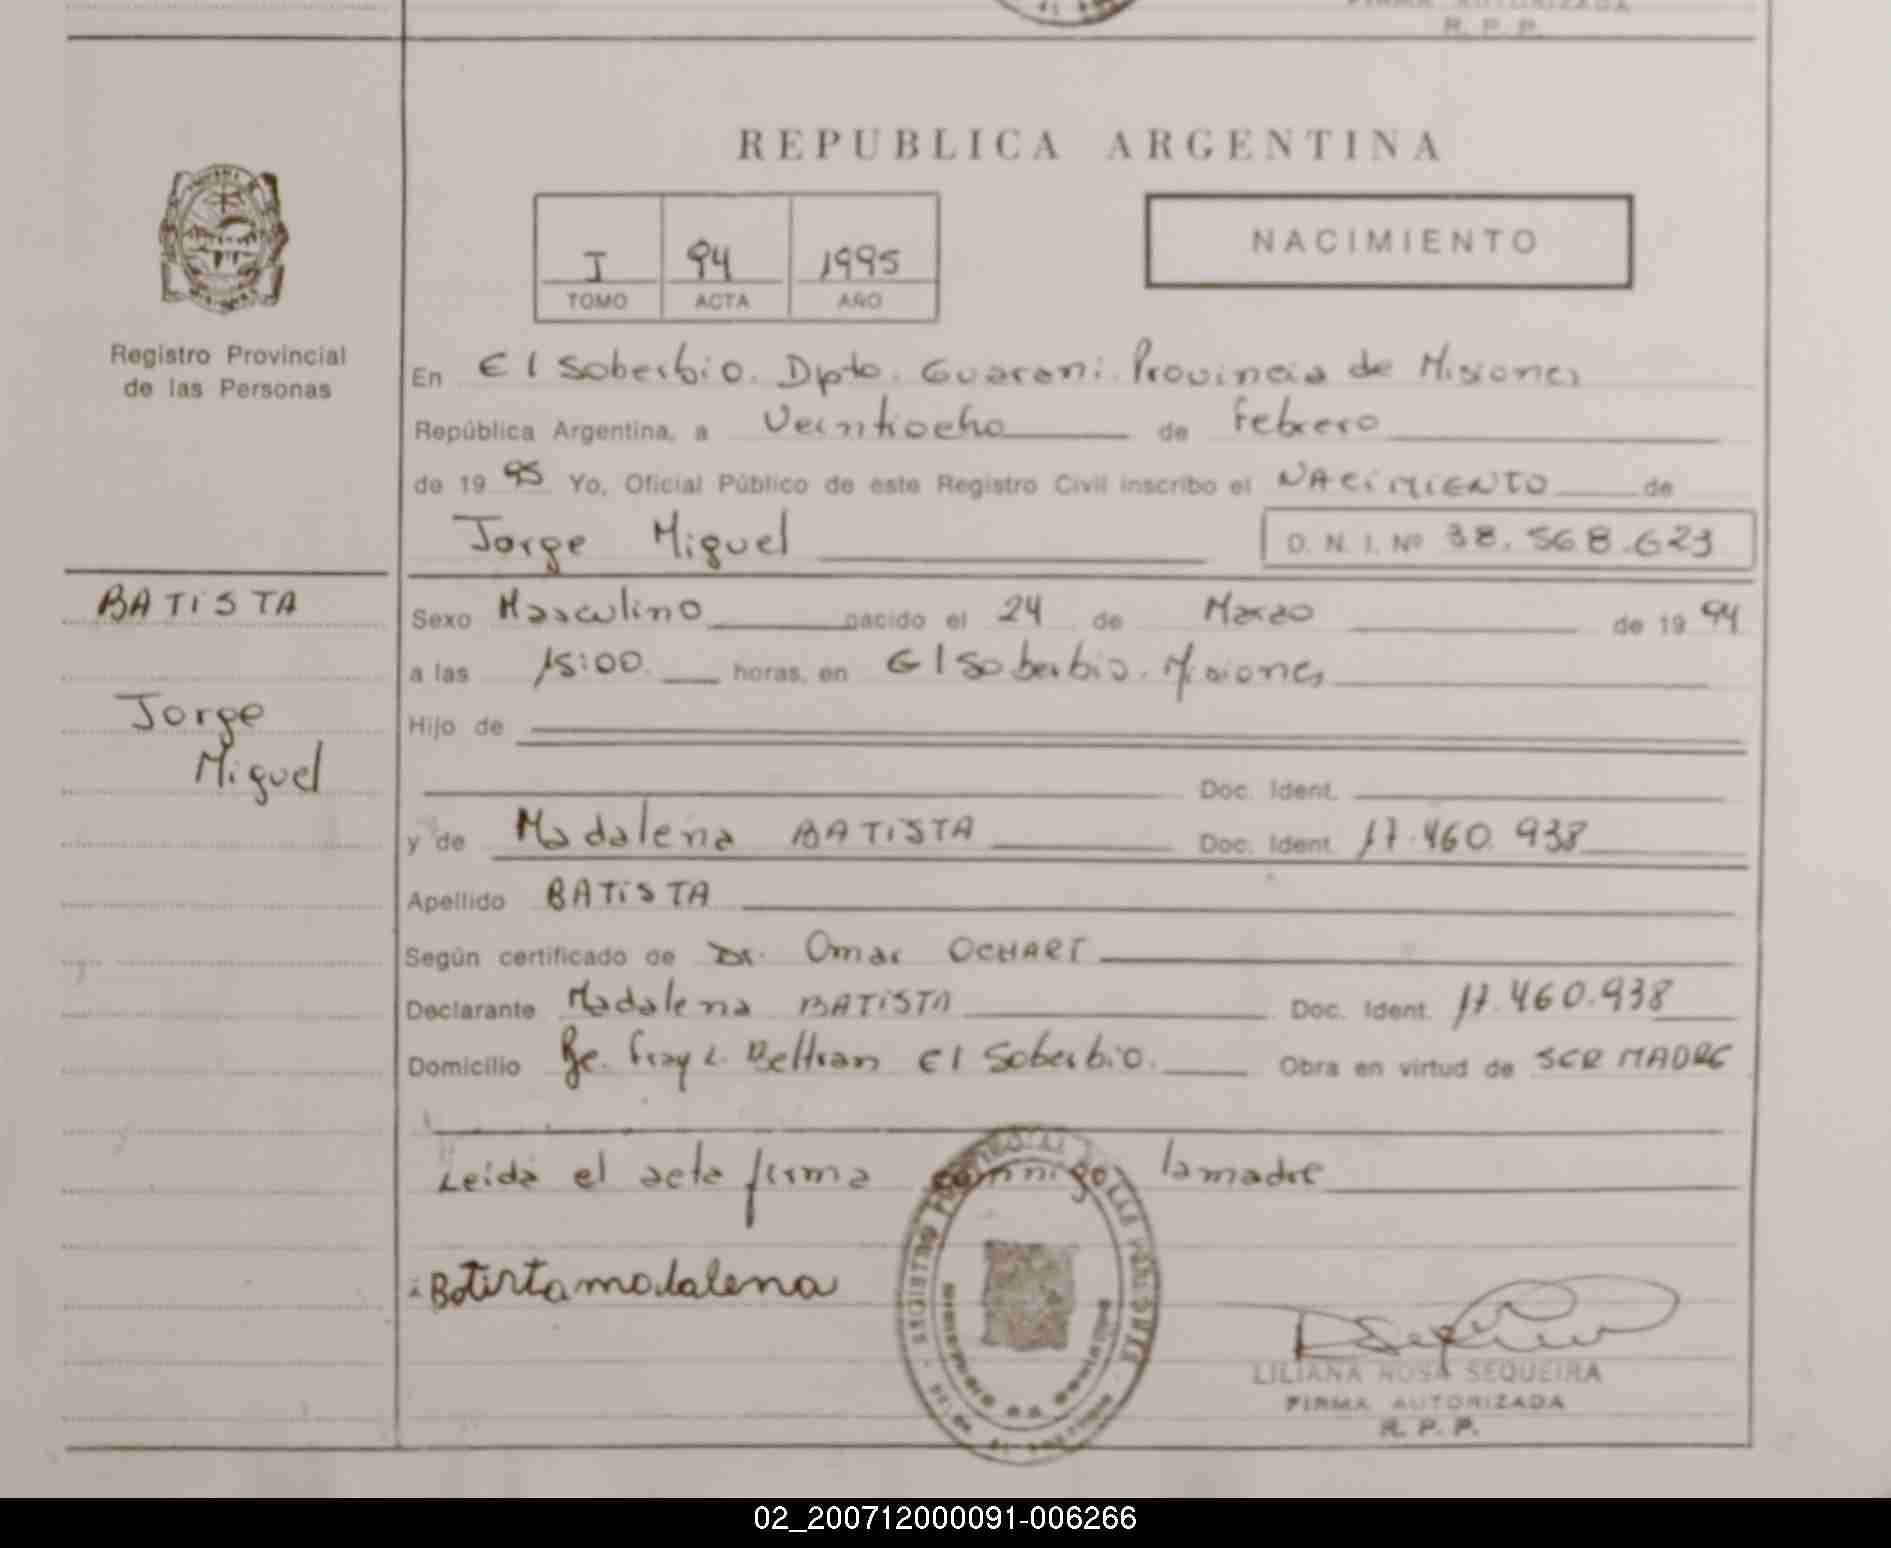 FIRMA AUTORIZADA
R. P. P.
REPUBLICA ARGENTINA
I 94 1995
TOMO ACTA AÑO
NACIMIENTO
Registro Provincial
de las Personas
En El Soberbio. Dpto. Guarani. Provincia de Misiones
República Argentina, a Veintiocho de Febrero
de 19 95 Yo, Oficial Público de este Registro Civil inscribo el NACIMIENTO de
Jorge Miguel D. N. I. Nº 38.568.623
BATISTA
Jorge
Miguel
Sexo Masculino nacido el 24 de Marzo de 19 94
a las 15:00. horas, en El Soberbio. Misiones
Hijo de
Doc. Ident.
y de Madalena BATISTA Doc. Ident. 17.460.938
Apellido BATISTA
Según certificado de Dr. Omar OCHART
Declarante Madalena BATISTA Doc. Ident. 17.460.938
Domicilio Fray L. Beltran El Soberbio. Obra en virtud de SER MADRE
Leida el acta firma conmigo la madre
Batista madalena
LILIANA ROSA SEQUEIRA
FIRMA AUTORIZADA
R. P. P.
02_200712000091-006266